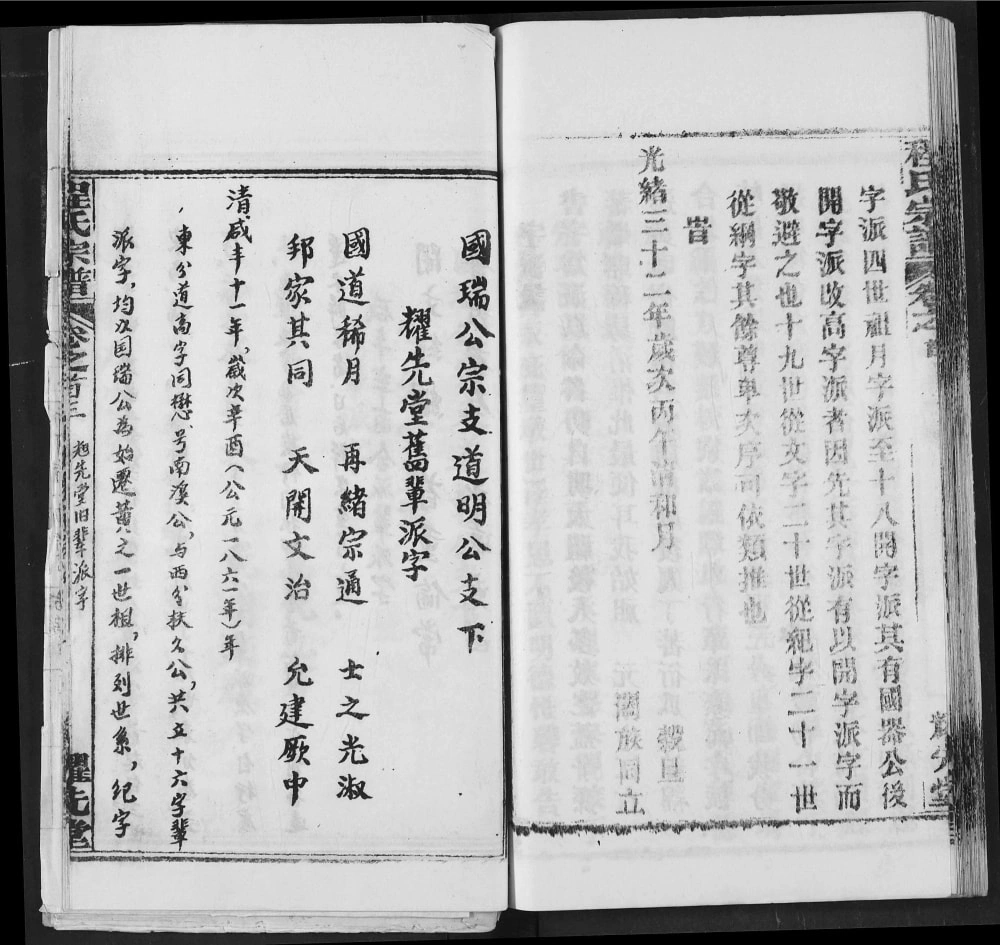 程氏宗譜 卷之首
字派四世祖月字派至十八開字派其有國器公後
開字派改高字派者因先其字派有以開字派字而
敬避之也十九世從文字二十世從祀字二十一世
從綱字其餘尊卑次序可依類推也
旹
光緒三十二年歲次丙午清和月 穀旦 元 闔族同立
耀先堂
國瑞公宗支道明公支下
耀先堂舊輩派字
國道稀月 再緒宗通 士之光淑
邦家其同 天開文治 允建厥中
清咸丰十一年，歲次辛酉（公元一八六一年）年
東分道高字同懋，号南溪公，与西分扶久公，共五十六字輩
派字，均以国瑞公為始遷黄之一世祖，排列世系，纪字
程氏宗譜 卷之首三 旭先堂旧辈派字
耀先堂